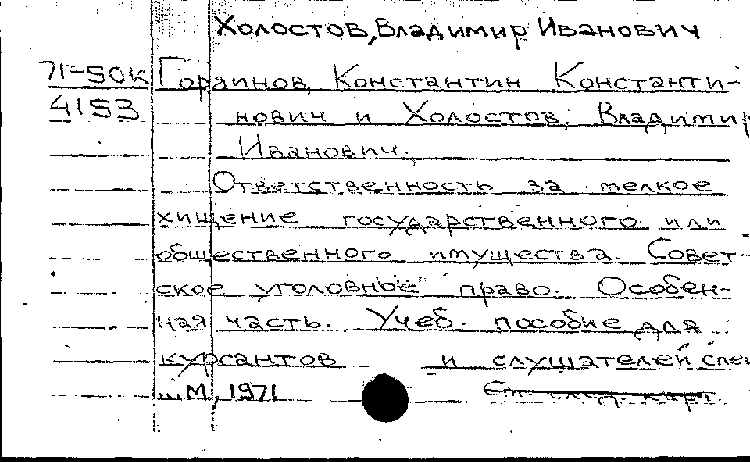 Холостов, Владимир Иванович
71-50К Горяинов, Константин Константи-
4153 нович и Холостов, Владимир
Иванович.
Ответственность за мелкое
хищение государственного или
общественного имущества. Совет-
ское уголовное право. Особен-
ная часть. Учеб. пособие для
курсантов и слушателей спец
... М, 1971